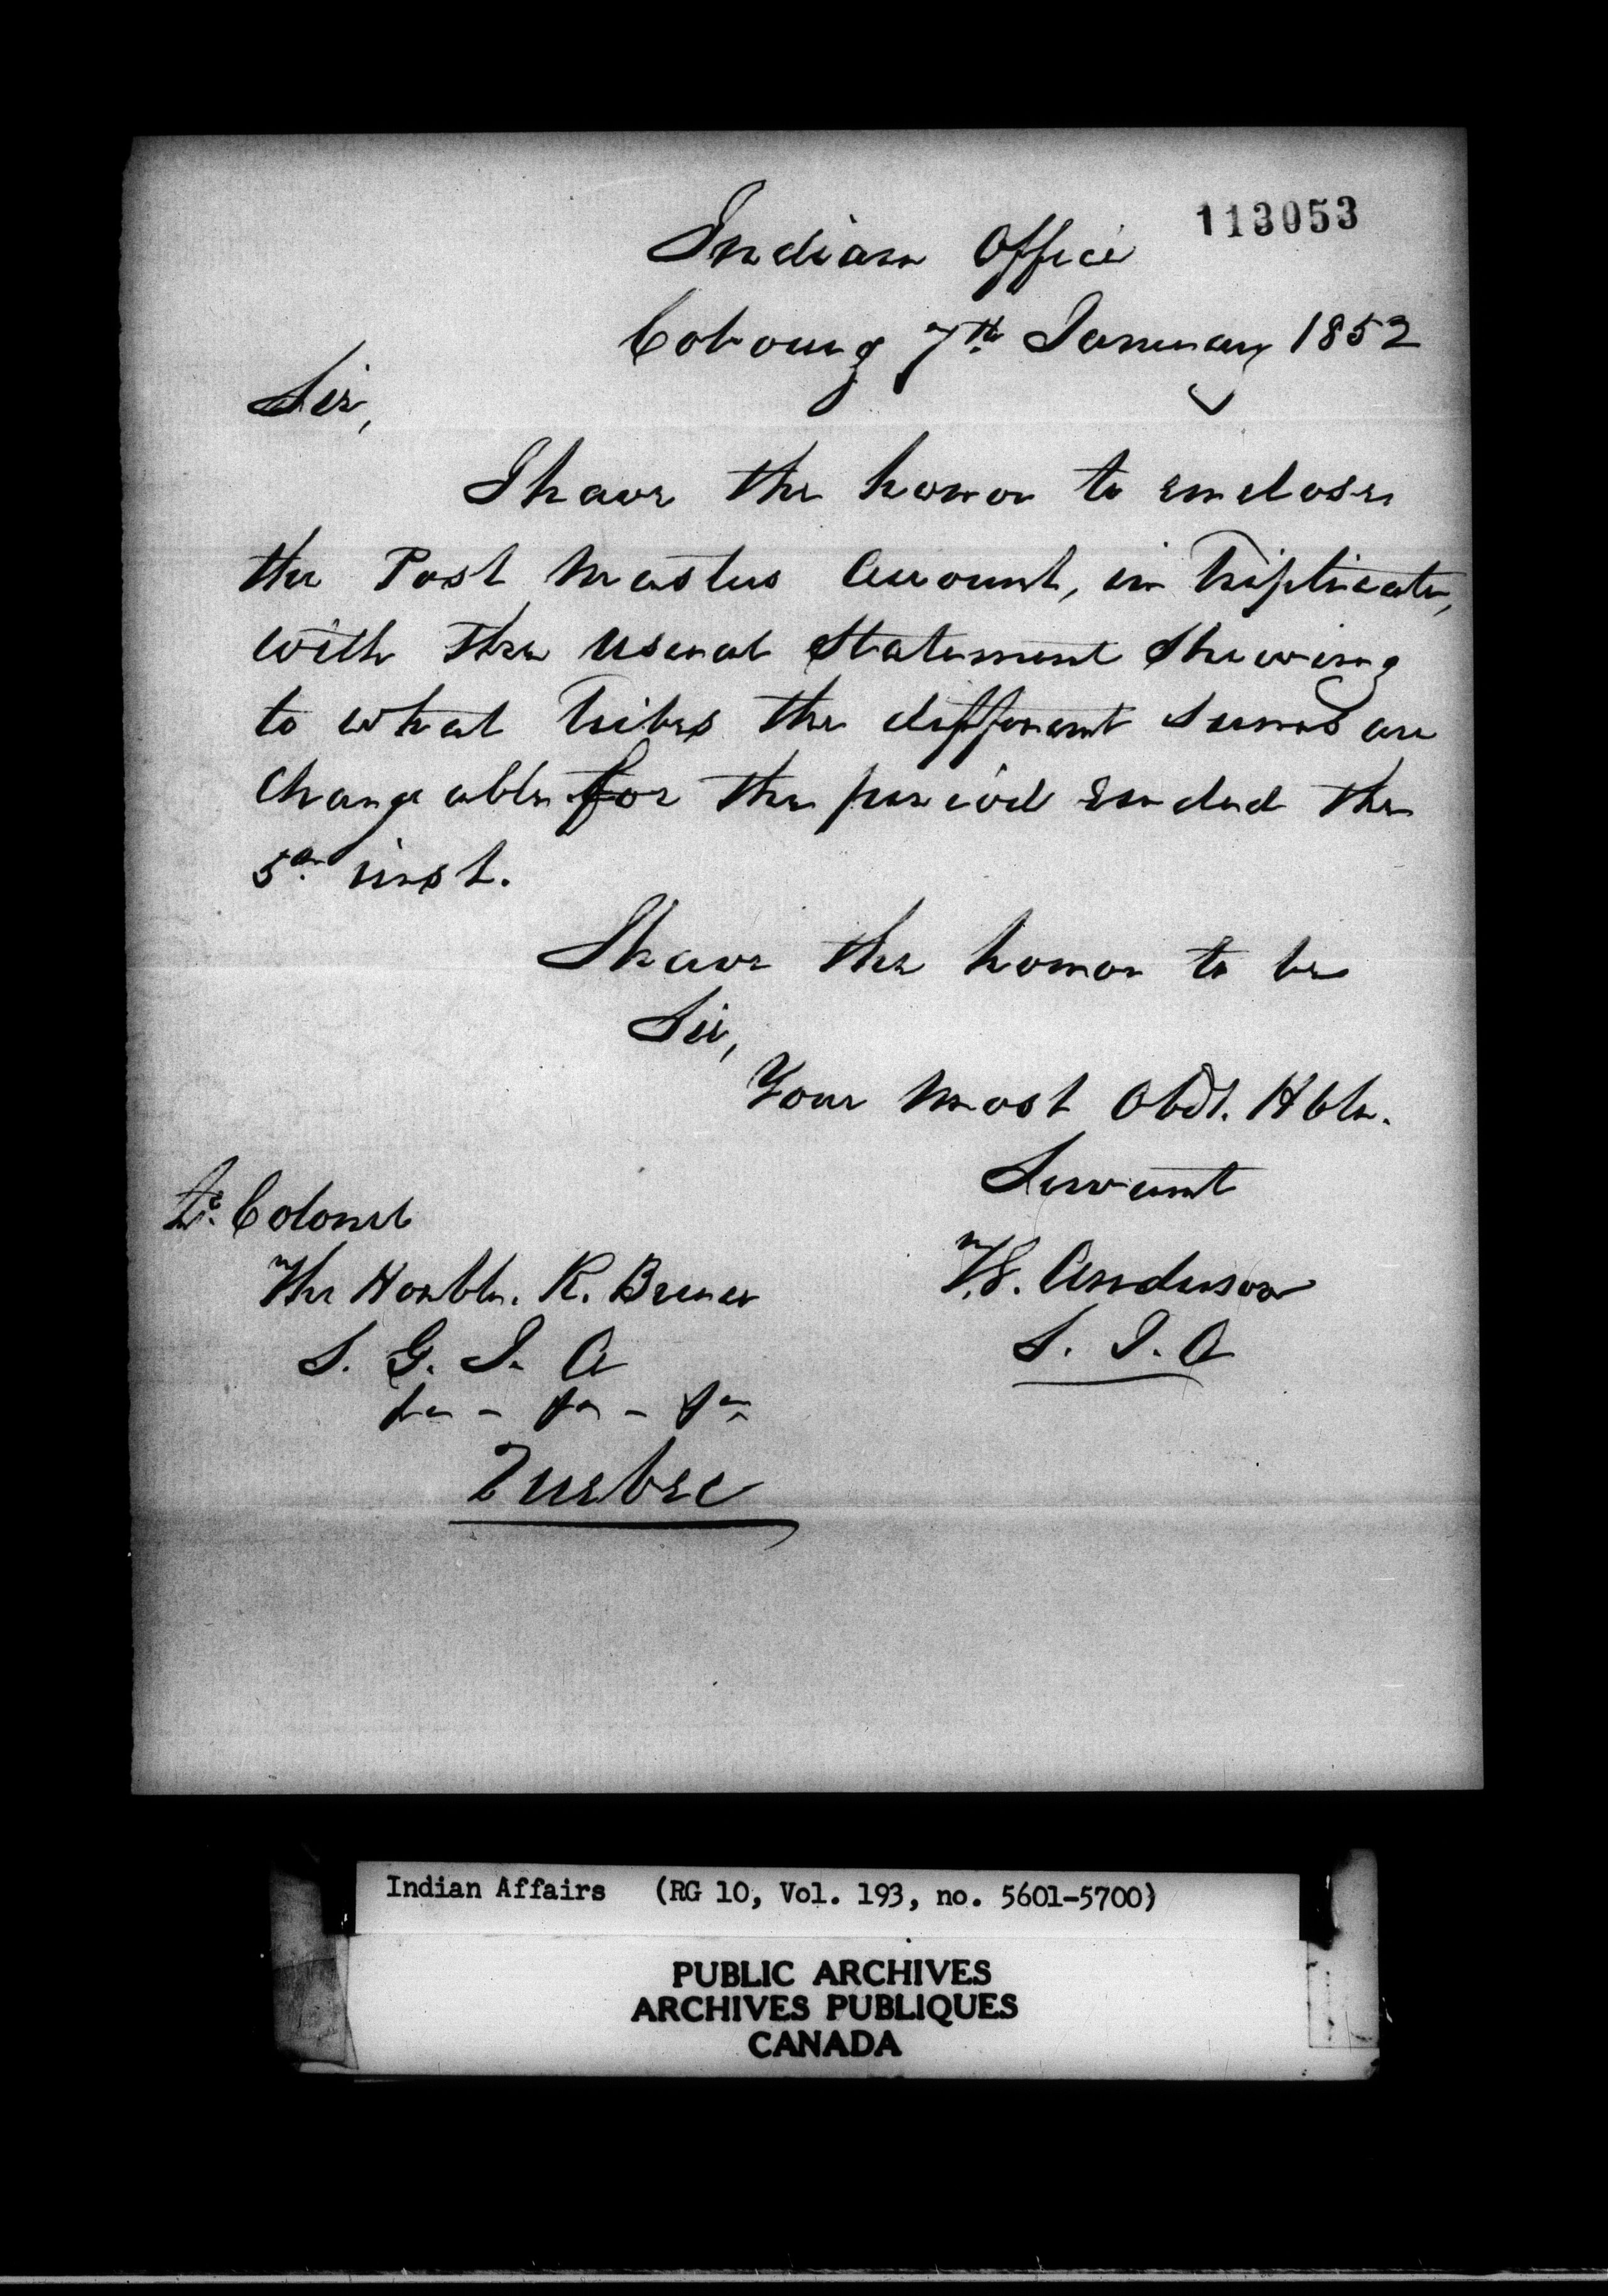 113053
Indian Office
Cobourg 7th January 1852
Sir,
I have the honor to enclose
the Post Masters Account, in Triplicate,
with the usual Statement Shewing
to what Tribes the different sums are
Chargeable for the period ended the
5th inst.
I have the honor to be
Sir,
Your most Obdt. Hble.
Servant
T.G. Anderson
S. I. A
Lt. Colonel
The Honble. R. Bruce
S. G. I. A
Quebec
Indian Affairs (RG 10, Vol. 193, no. 5601-5700)
PUBLIC ARCHIVES
ARCHIVES PUBLIQUES
CANADA